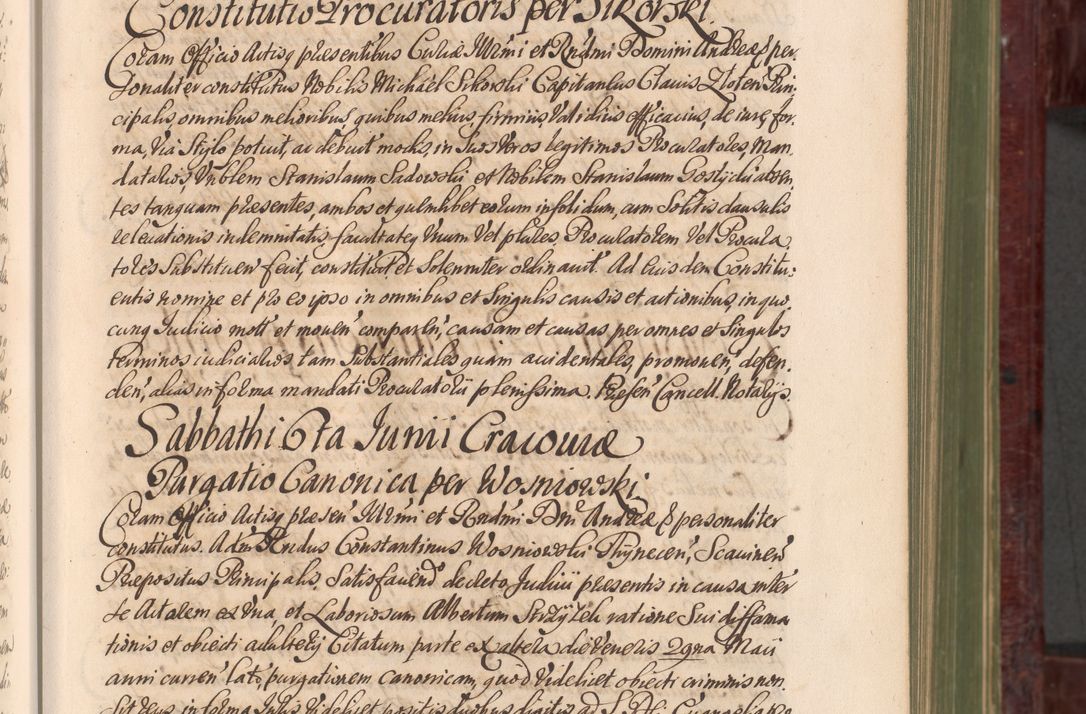 Constitutio Procuratoris per Sikorski
Coram Officio Actisq presentibus Curiæ Illrmi et Rndmi Domini Andreæ & per
sonaliter constitutus Nobilis Michael Sikorski Capitaneus Clavis Zloten Prin
cipalis, omnibus melioribus, quibus melius, firmius, Validius efficacius, de iure, for
ma, Via Stylo potuit, ac debuit modis, in Suos Veros legitimos Procuratores, Man
datarios, Nobilem Stanislaum Sadowski et Nobilem Stanislaum absen
tes tanquam præsentes, ambos et quemlibet eorum in solidum, cum Solitis clausulis
relevationis indemnitatis, facultateq Unum Vel plures, Procuratorem Vel Procura
tores Substituen fecit, constituit et Solenniter ordinavit. Ad Eiusdem Constitu:
entis nomine et pro eo ipso in omnibus et Singulis causis et actionibus, in quo
cunq Iudicio mott et moven comparen, causam et causas per omnes et Singulos
terminos iudiciarios tam Substantiales quam accidentales, promoven, defen
den, alias in forma mandati Procuratorii plenissima. Presen Cancell. Notarijs.
Sabbathi 6ta Iunii Cracoviæ
Purgatio Canonica per Wosniowski
Coram Officio Actisq præsen Illrmi et Rndmi Dni Andreæ & personaliter
constitutus. Adm Rndus Constantinus Wosniowski Thynecen, Scavinen
Præpositus Principalis, Satisfaciend decreto Iudicii præsentis in causa inter
se Actorem ex Una, et Laboriosum Albertum ratione Sui diffama
tionis et obiecti adulterij Citatum parte ex altera die Veneris 29na Maii
anni curren lato, purgationem canonicam, quod Videlicet obiecti criminis non
Sit Reus in forma Iuris Videlicet positis duobus digitis ad S. Dei Evangelia